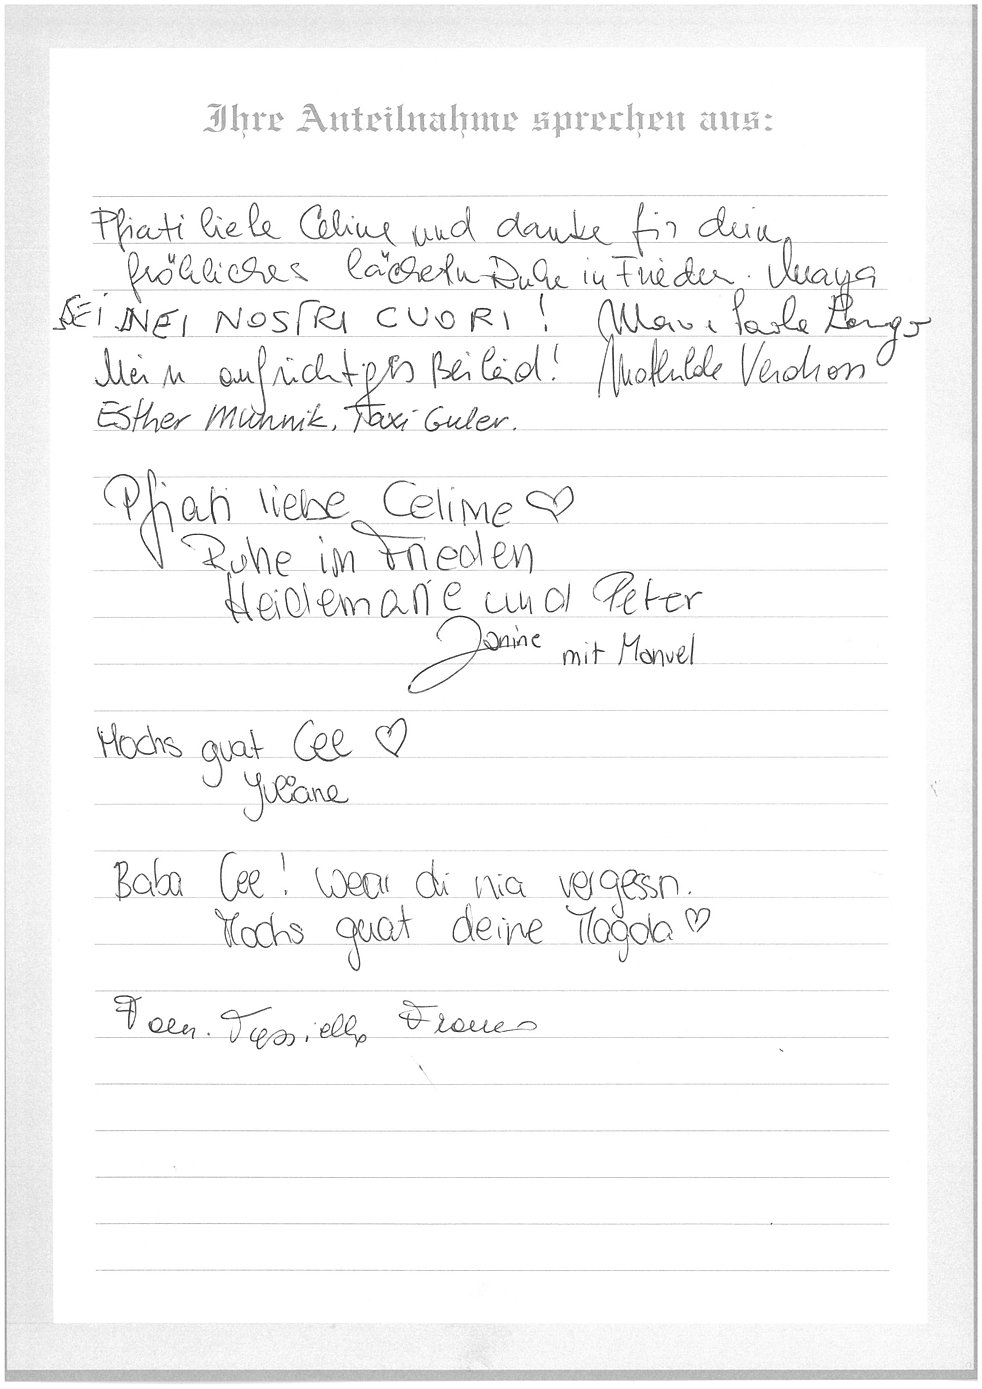 Ihre Anteilnahme sprechen aus:
Pfiati liebe Celine und danke für dein
fröhliches lächeln Ruhe in Frieden.
SEI NEI NOSTRI CUORI! Paola
Mein aufrichtiges Beileid! Mathilde Verdross
Esther Munnik, Taxi Guler.
Pfiati liebe Celine ♡
Ruhe in Frieden
Heidemarie und Peter
Janine mit Manuel
Mochs guat Cee ♡
Juliane
Baba Cee! Wear di nia vergessn.
Mochs guat deine Magda ♡
Fam.